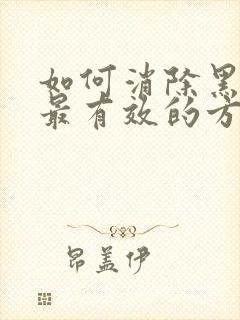 如何消除黑
最有效的方
昂盖伊